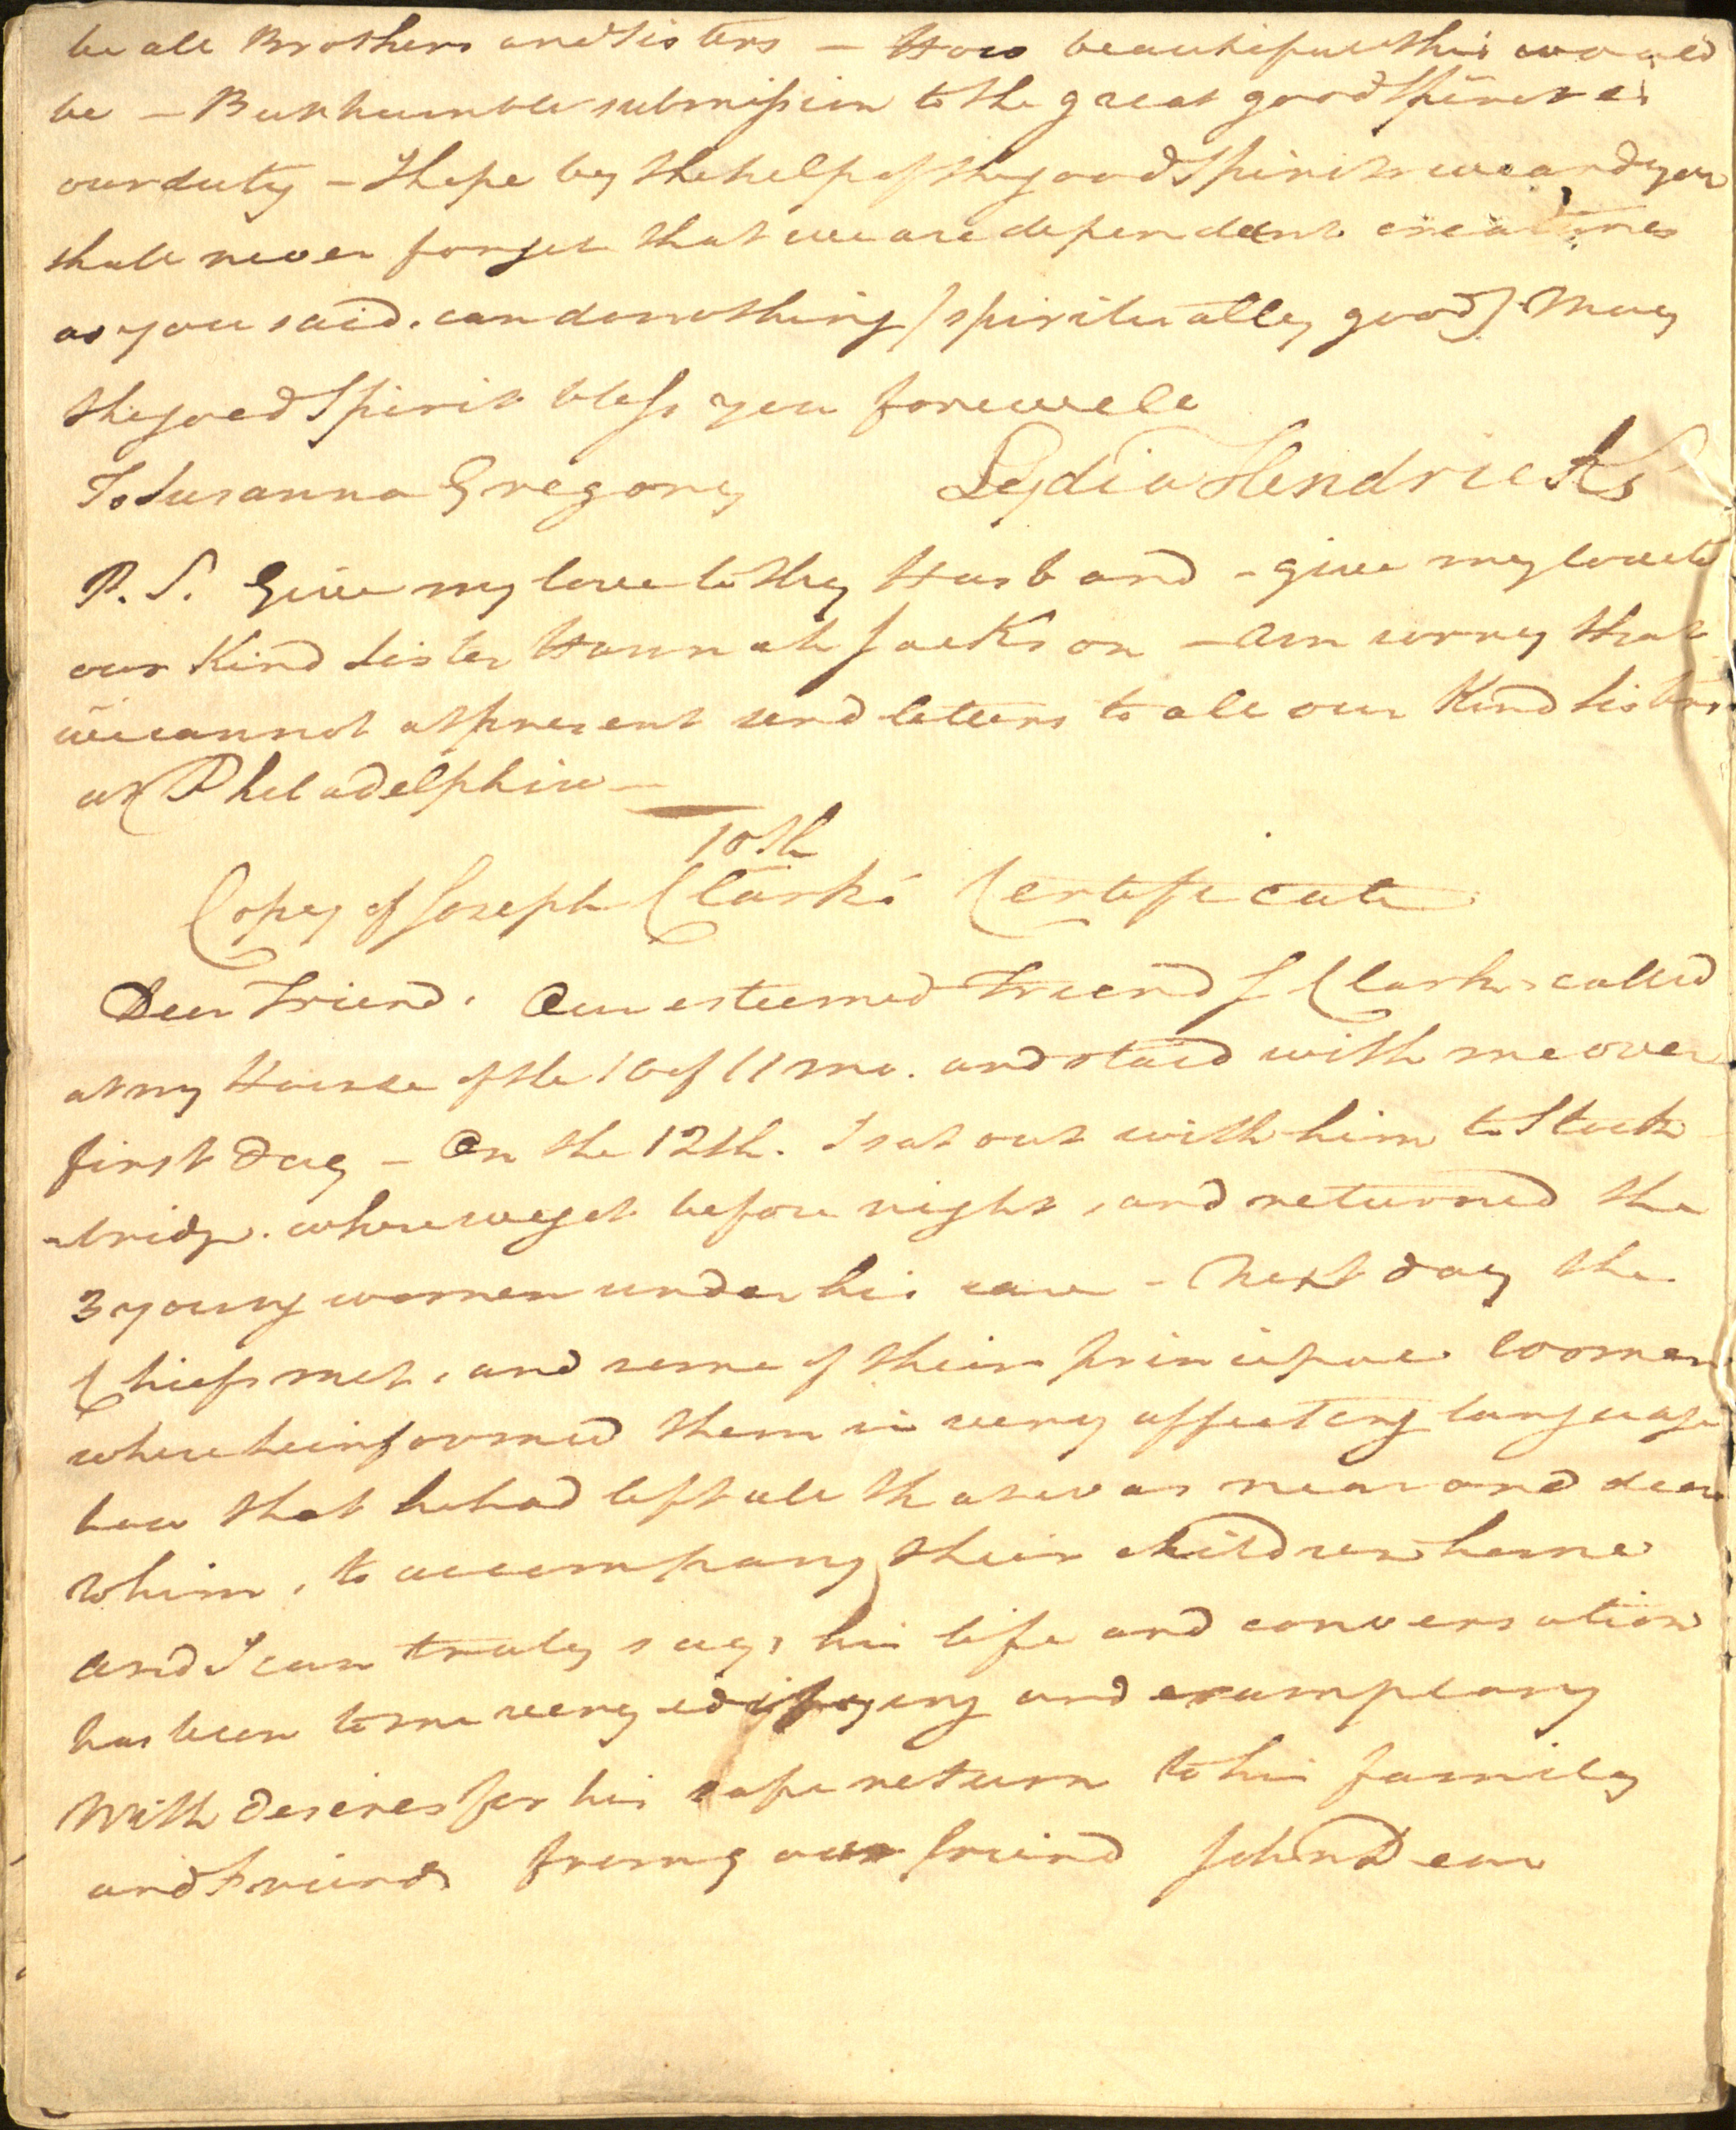 be all Brothers and Sisters — How beautiful this would
be — But humble submission to the great good Spirit is
our duty — I hope by the help of the good Spirit we and you
shall never forget that we are dependent creatures
as you said. can do nothing [spiritually good] May
the good Spirit bless you forewell
To Susanna Gregory Lydia Hendricks
P. S. Give my love to thy Husband - give my love to
our Kind Sister Hannah Jackson — Am sorry that
we cannot at present send letters to all our Kind Sisters
at Philadelphia —
10th
Copy of Joseph Clark's Certificate
Dear Friend. Our esteemed Friend J Clark, called
at my House the 10 of 11 mo. and staid with me over
first day — On the 12th. I sat out with him to Stock
-bridge. where we got before night, and returned the
3 young women under his care - Next day the
Chiefs met, and some of their principal women
where he informed them in very affecting language
how that he had left all that was near and dear
to him, to accompany their children home
and I can truly say, his life and conversation
has been to me very edifying and examplary
With desires for his safe return to his family
and Friends from your friend John Dean